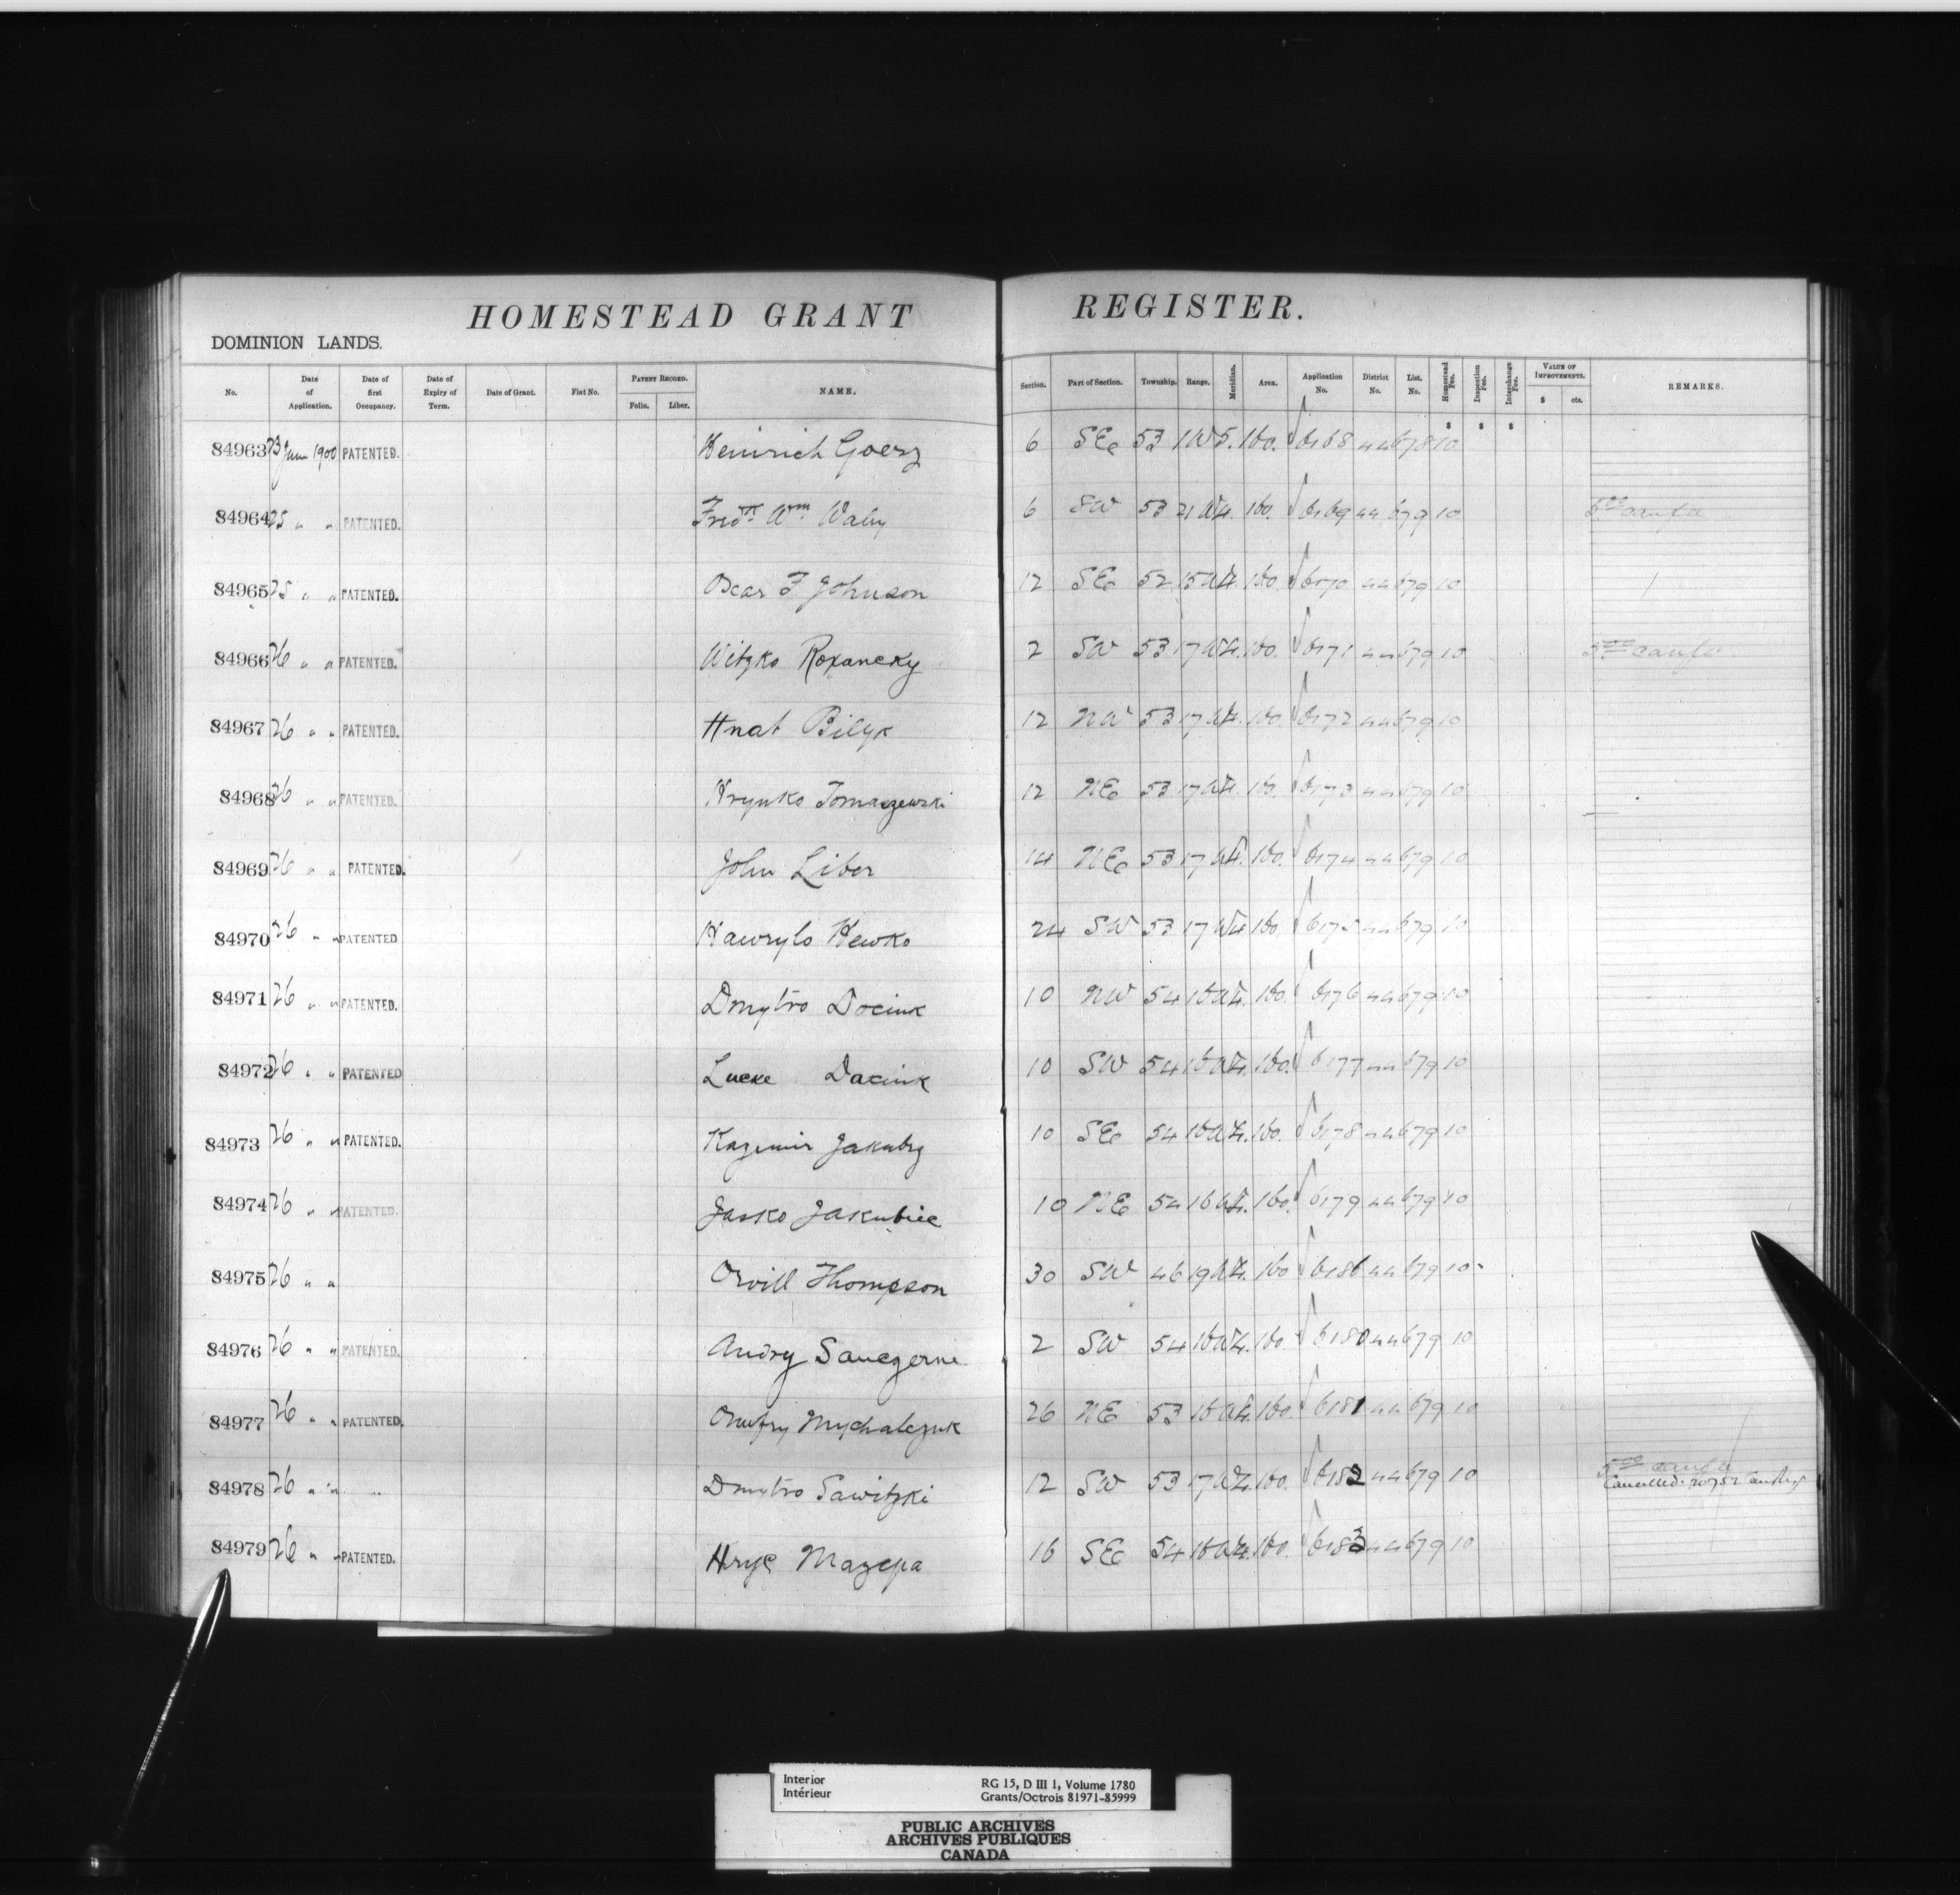 HOMESTEAD GRANT REGISTER.
DOMINION LANDS.
No. Date of Application. Date of first Occupancy. Date of Expiry of Term. Date of Grant. Fiat No. PATENT RECORD. Folio. Liber. NAME. Section. Part of Section. Township. Range. Meridian. Area. Application No. District No. List. No. Homestead Fee. Inspection Fee. Interchange Fee. VALUE OF IMPROVEMENTS. $ cts. REMARKS.
$ $ $
84963 23 Jan 1900 PATENTED. Heinrich Goerz 6 SE 53 1 W 5. 160. 6168 44 678 10
84964 25 " " PATENTED. Fredk Wm Waby 6 SW 53 21 W 4. 160. 6169 44 679 10
84965 25 " " PATENTED. Oscar F Johnson 12 SE 52 15 W 4. 160. 6170 44 679 10
84966 26 " " PATENTED. Witzko Roxanecky 2 SW 53 17 W 4. 160. 6171 44 679 10
84967 26 " " PATENTED. Hnat Bilyk 12 NW 53 17 W 4. 160. 6172 44 679 10
84968 26 " " PATENTED. Hrynko Tomaszewski 12 NE 53 17 W 4. 160. 6173 44 679 10
84969 26 " " PATENTED. John Liber 14 NE 53 17 W 4. 160. 6174 44 679 10
84970 26 " " PATENTED Hawrylo Hewko 24 SW 53 17 W 4. 160 6175 44 679 10
84971 26 " " PATENTED. Dmytro Dociuk 10 NW 54 16 W 4. 160. 6176 44 679 10
84972 26 " " PATENTED Lucke Daciuk 10 SW 54 16 W 4. 160. 6177 44 679 10
84973 26 " " PATENTED. Kazimir Jakuby 10 SE 54 16 W 4. 160. 6178 44 679 10
84974 26 " " PATENTED. Jasko Jakubiec 10 NE 54 16 W 4. 160. 6179 44 679 10
84975 26 " " Orvill Thompson 30 SW 46 19 W 4. 160 6186 44 679 10
84976 26 " " PATENTED. Andry Sauczerne 2 SW 54 16 W 4. 160. 6180 44 679 10
84977 26 " " PATENTED. Onufry Mychalczuk 26 NE 53 16 W 4. 160. 6181 44 679 10
84978 26 " " Dmytro Sawitzki 12 SW 53 17 W 4. 160. 6182 44 679 10 Cancelled
84979 26 " " PATENTED. Hryc Mazepa 16 SE 54 16 W 4. 160. 6183 44 679 10
Interior RG 15, D III 1, Volume 1780
Intérieur Grants/Octrois 81971-85999
PUBLIC ARCHIVES
ARCHIVES PUBLIQUES
CANADA